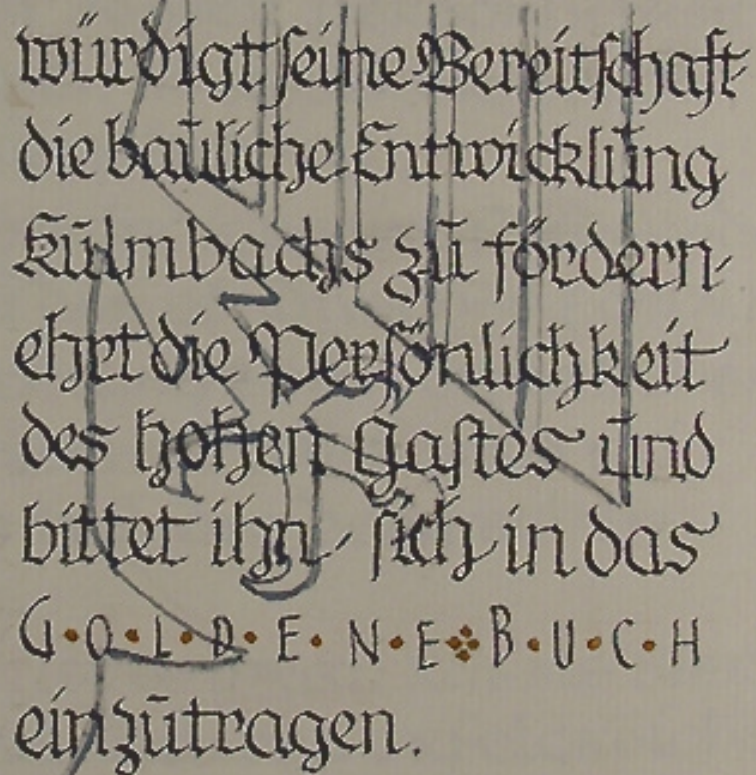 würdigt seine Bereitschaft
die bauliche Entwicklung
Kulmbachs zu fördern,
ehrt die Persönlichkeit
des hohen Gastes und
bittet ihn, sich in das
G·O·L·D·E·N·E B·U·C·H
einzutragen.